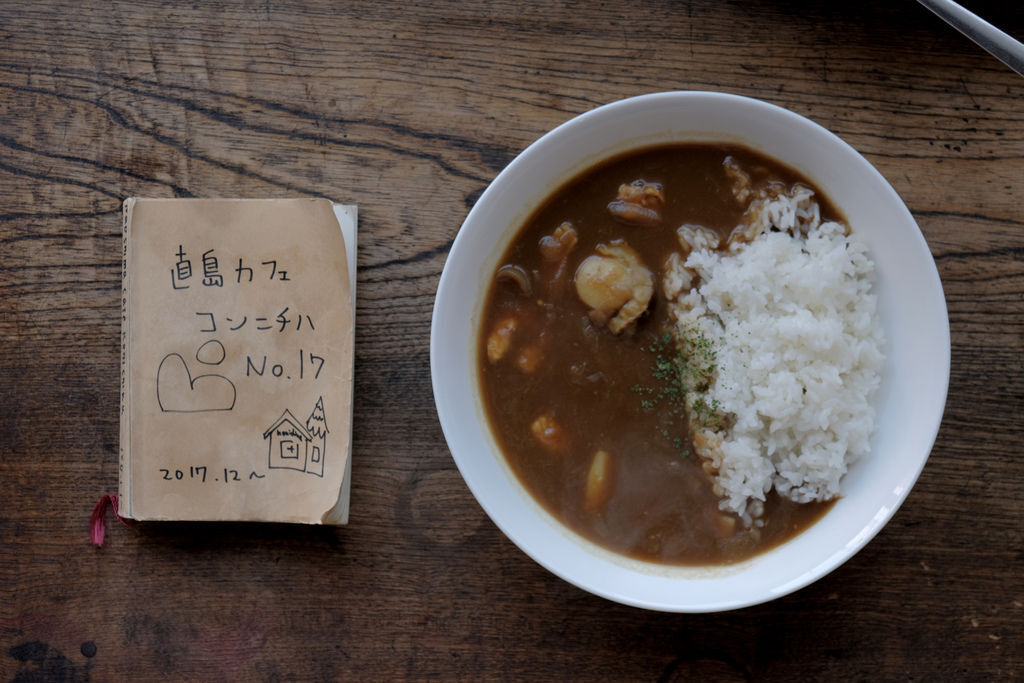 直島カフェ
コンニチハ
No.17
2017.12～